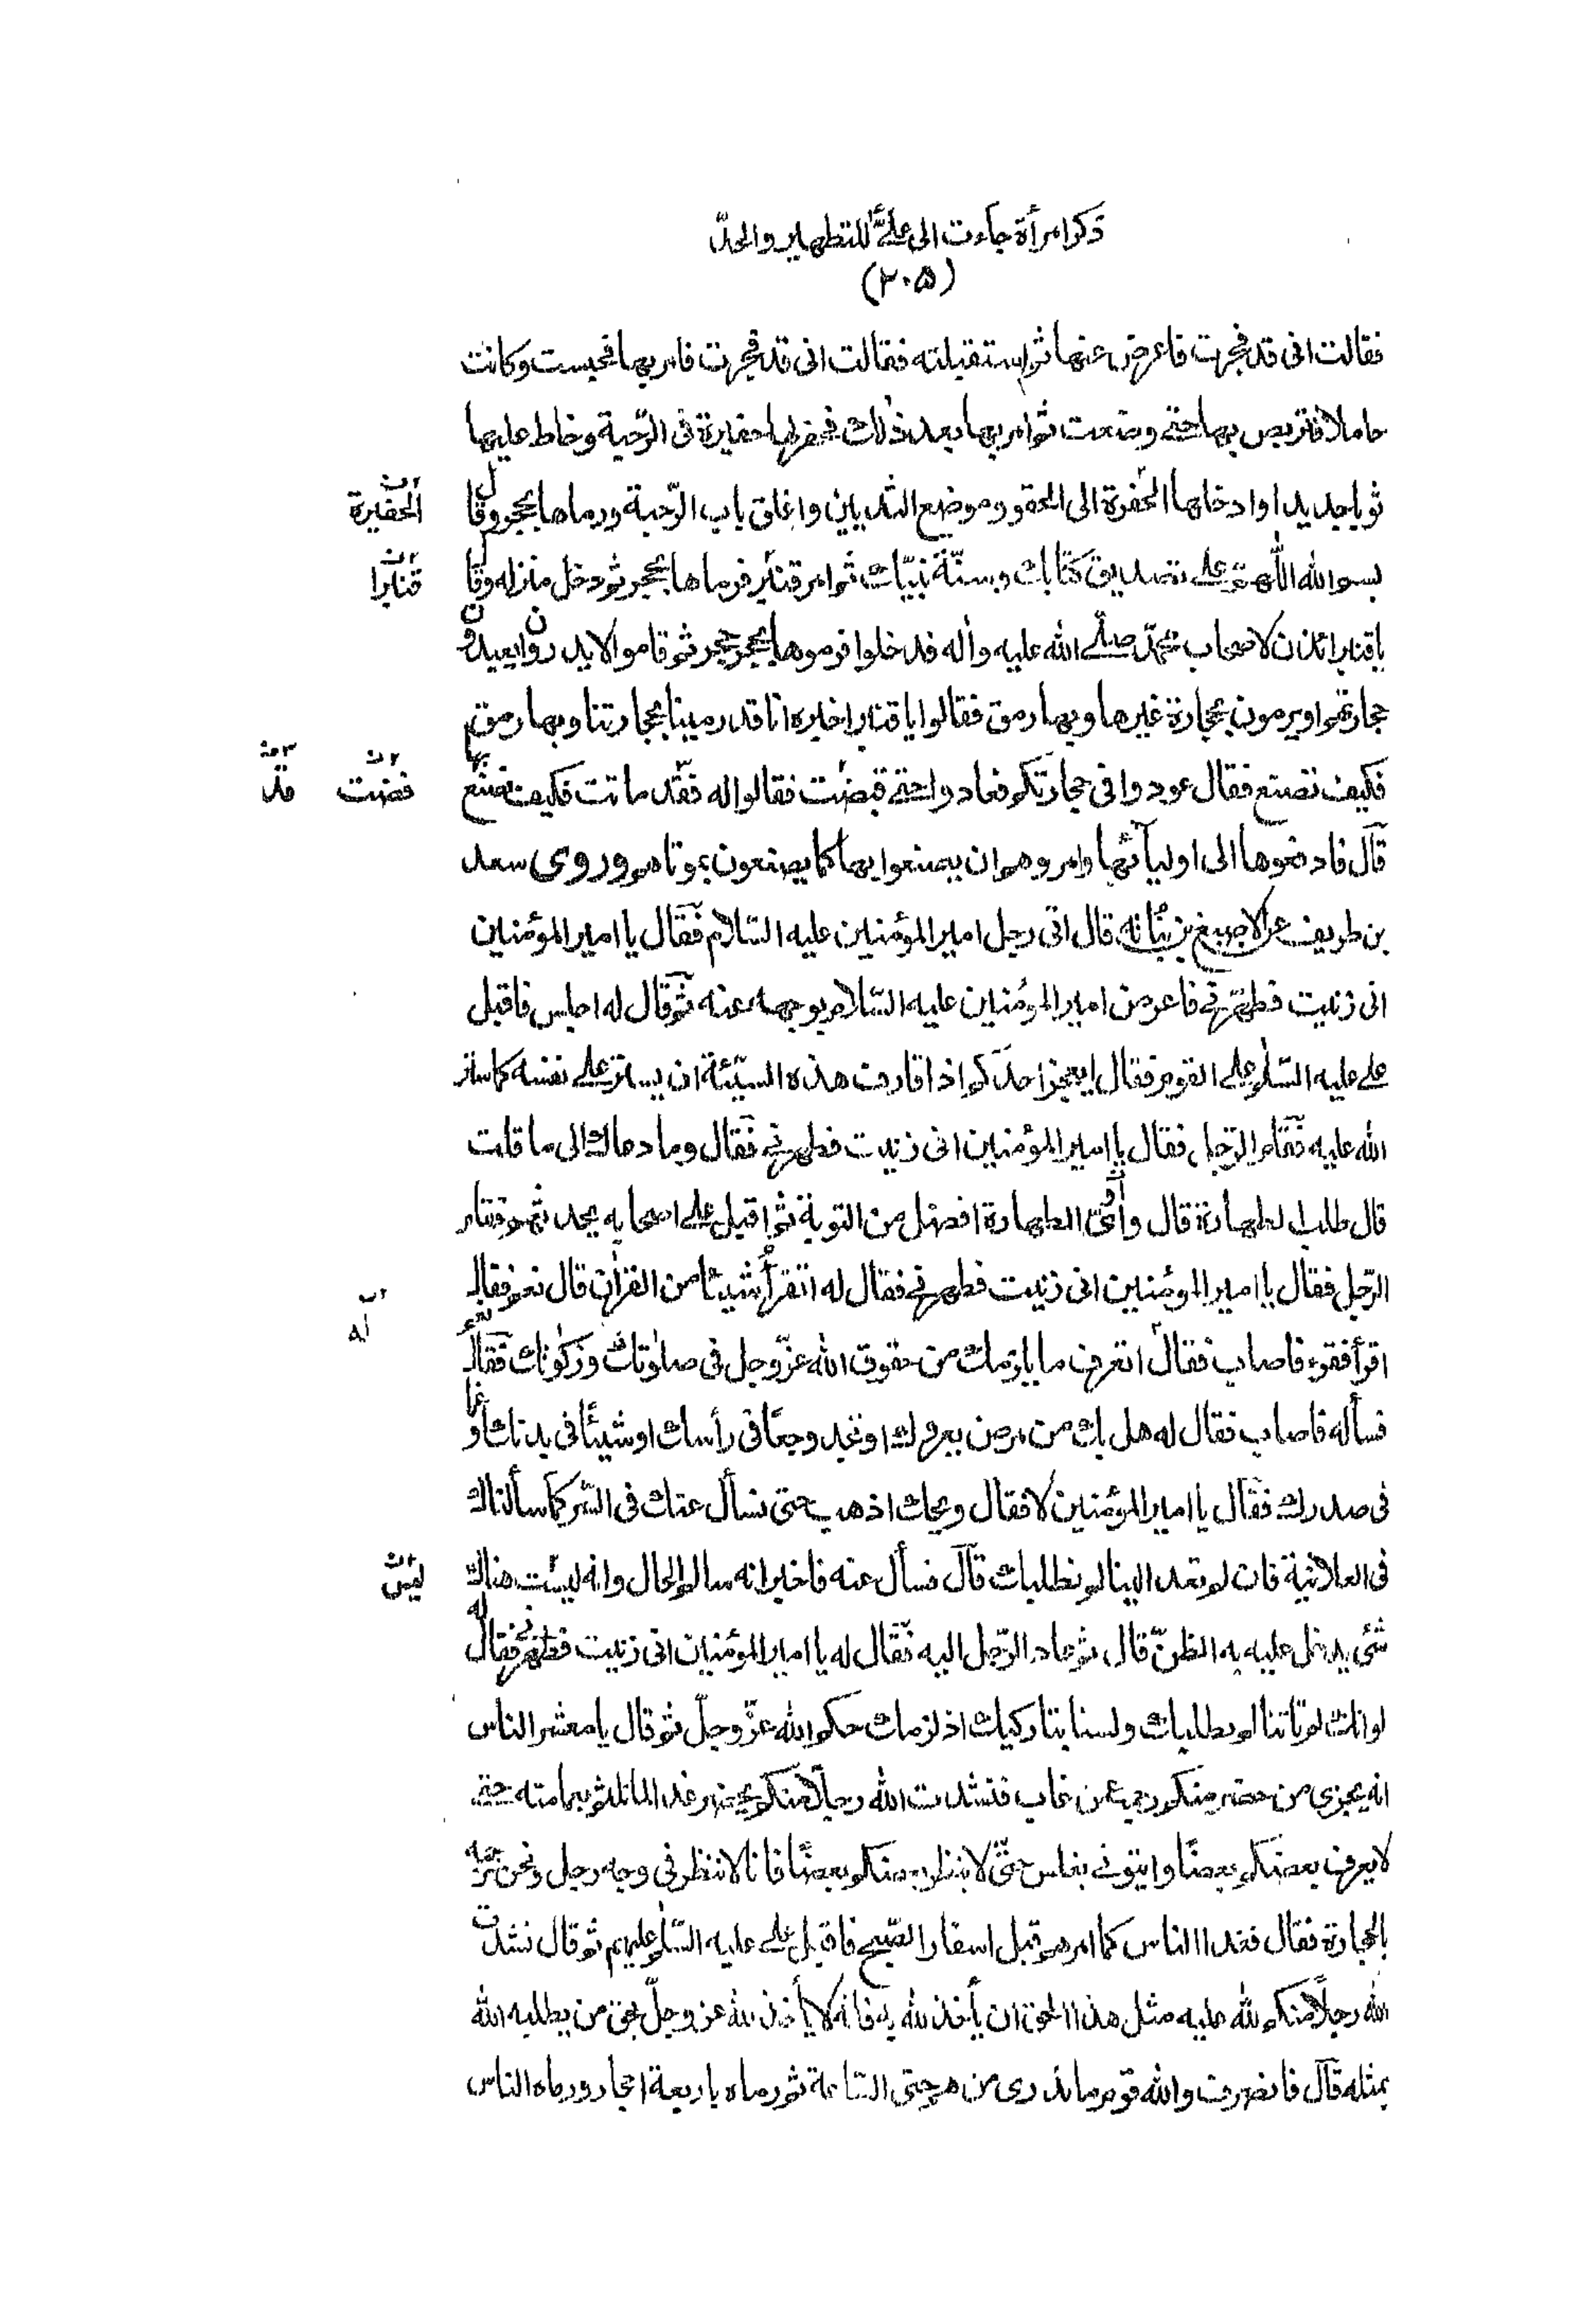 ذكر امرأة جاءت الى علىّ للتطهير والحدّ
(٢٠٥)
فقالت انى قد فجرت فاعرض عنها ثم استقبلته فقالت انى قد فجرت فامر بها فحبست وكانت
حاملا فتربص بها حتى وضعت ثم امر بها بعد ذلك فحفر لها حفيرة فى الرّحبة وخاط عليها
ثوبا جديدا وادخلها الحفرة الى الحقو وموضع الثديين واغلق باب الرّحبة ورماها بحجر وقال
الحفيرة
بسم الله اللّهمّ على تصديق كتابك وسنّة نبيّك ثم امر قنبر فرماها بحجر ثم دخل منزله وقال
قنبرا
يا قنبر ائذن لاصحاب محمّد صلّى الله عليه واله فدخلوا فرموها بحجر حجر ثم قاموا لا يدرون ايعيدون
حجارتهم او يرمون بحجارة غيرها وبها رمق فقالوا يا قنبر اخبره انا قد رمينا بحجارتنا وبها رمق
فكيف نصنع فقال عودوا فى حجارتكم فعادوا حتى قبضت فقالوا له فقد ماتت فكيف نصنع بها
قضت
قد
قال فادفعوها الى اوليائها وامروهم ان يصنعوا بها كما يصنعون بموتاهم وروى سعد
بن طريف عن الاصبغ بن نباته قال اتى رجل امير المؤمنين عليه السّلام فقال يا امير المؤمنين
انى زنيت فطهّرنى فاعرض امير المؤمنين عليه السّلام بوجهه عنه ثم قال له اجلس فاقبل
على عليه السّلم على القوم فقال ايعجز احدكم اذا قارف هذه السيّئة ان يستر على نفسه كما ستر
الله عليه فقام الرّجل فقال يا امير المؤمنين انى زنيت فطهرنى فقال وما دعاك الى ما قلت
قال طلب الطهارة قال واىّ الطهارة افضل من التوبة ثم اقبل على اصحابه يحدثهم فقام
الرّجل فقال يا امير المؤمنين انى زنيت فطهرنى فقال له اتقرأ شيئا من القرأن قال نعم فقال
له
اقرأ فقرء فاصاب فقال اتعرف ما يلزمك من حقوق الله عزّ وجل فى صلوتك وزكوتك فقال نعم
فسأله فاصاب فقال له هل بك من مرض يعروك او تجد وجعًا فى رأسك او شيئًا فى بدنك او غما
فى صدرك فقال يا امير المؤمنين لا فقال ويحك اذهب حتى نسأل عنك فى السّر كما سألناك
فى العلانية فان لم تعد الينا لم نطلبك قال فسأل عنه فاخبر انه سالم الحال وانه ليست هناك
ليس
شئ يدخل عليه به الظنّ قال ثم عاد الرّجل اليه فقال له يا امير المؤمنين انى زنيت فطهرنى فقال له
لو انك لم تاتنا لم نطلبك ولسنا بتاركيك اذ لزمك حكم الله عزّ وجلّ ثم قال يا معشر الناس
انه يجزى من حضر منكم رجمه عن غاب فنشدت الله رجلًا منكم يحضر غدا لما تلثم بعمامته حتى
لا يعرف بعضكم بعضًا وايتونى بغلس حتّى لا ينظر بعضكم بعضًا فانا لا ننظر فى وجه رجل ونحن نرجمه
بالحجارة فقال فغدا الناس كما امرهم قبل اسفار الصّبح فاقبل على عليه السّلم عليهم ثم قال نشدت
الله رجلًا منكم لله عليه مثل هذا الحق ان يأخذ لله به فانه لا يأخذ لله عز وجلّ بحق من يطلبه الله
بمثله قال فانصرف والله قوم ما ندرى من هم حتى السّاعة ثم رماه باربعة احجار ورماه الناس